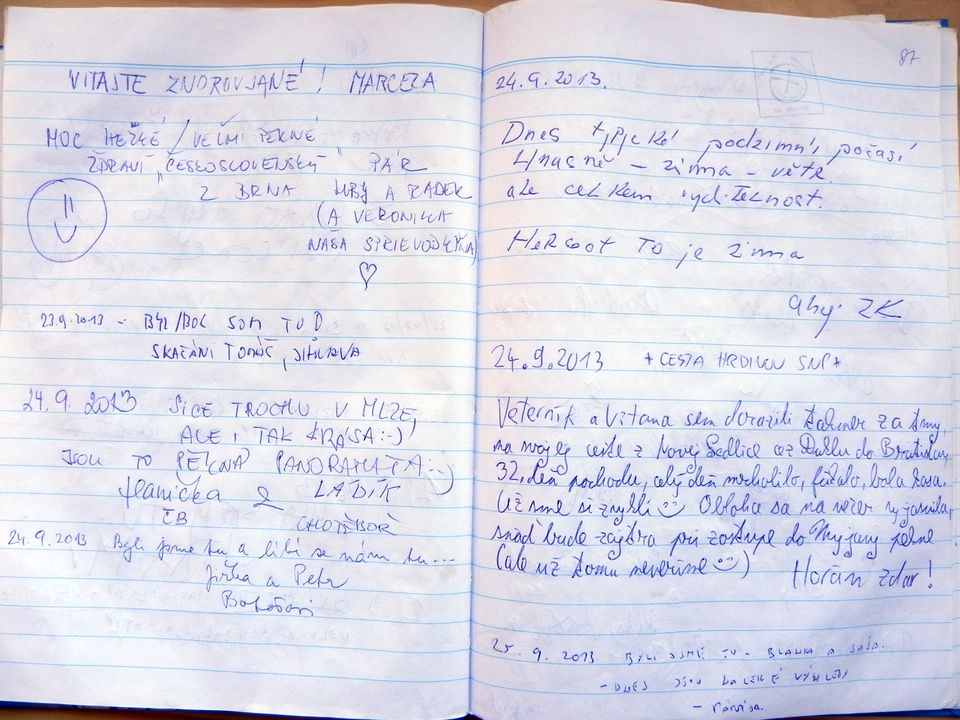 VITAJTE ZNOROVJANÉ! MARCELA
MOC HEZKÉ / VEĽMI PEKNÉ
ZDRAVÍ „ČESKOSLOVENSKÝ" PÁR
Z BRNA ĽUBY A RADEK
(A VERONIKA
NAŠA SPRIEVODKYŇA)
23.9.2013 - BYL/BOL SOM TU
TOMÁŠ, JIHLAVA
24.9.2013 SICE TROCHU V MLZE,
ALE I TAK KRÁSA :-)
JSOU TO PĚKNÁ PANORAMATA :-)
Hanička & LADÍK
ČB CHOTĚBOŘ
24.9.2013 Byli jsme tu a líbí se nám tu...
Jirka a Petr
87
24.9.2013.
Dnes typické podzimní počasí
- zima - větr.
ale celkem viditelnost.
to je zima
Ahoj ZK
24.9.2013 *CESTA HRDINOV SNP*
Veterník a sem dorazili takmer za tmy,
na svojej ceste z Novej Sedlice cez Duklu do Bratislavy
32. deň pochodu, celý deň mrholilo, fúkalo, bola kosa.
Už sme si zvykli Obloha sa na večer vyjasnila,
snáď bude zajtra pri zostupe do Myjavy pekne
(ale už tomu neveríme) Horám zdar!
25.9.2013 BYLI JSME TU - BLANKA A SAŠA.
- DNES JSOU DALEKÉ VÝHLEDY